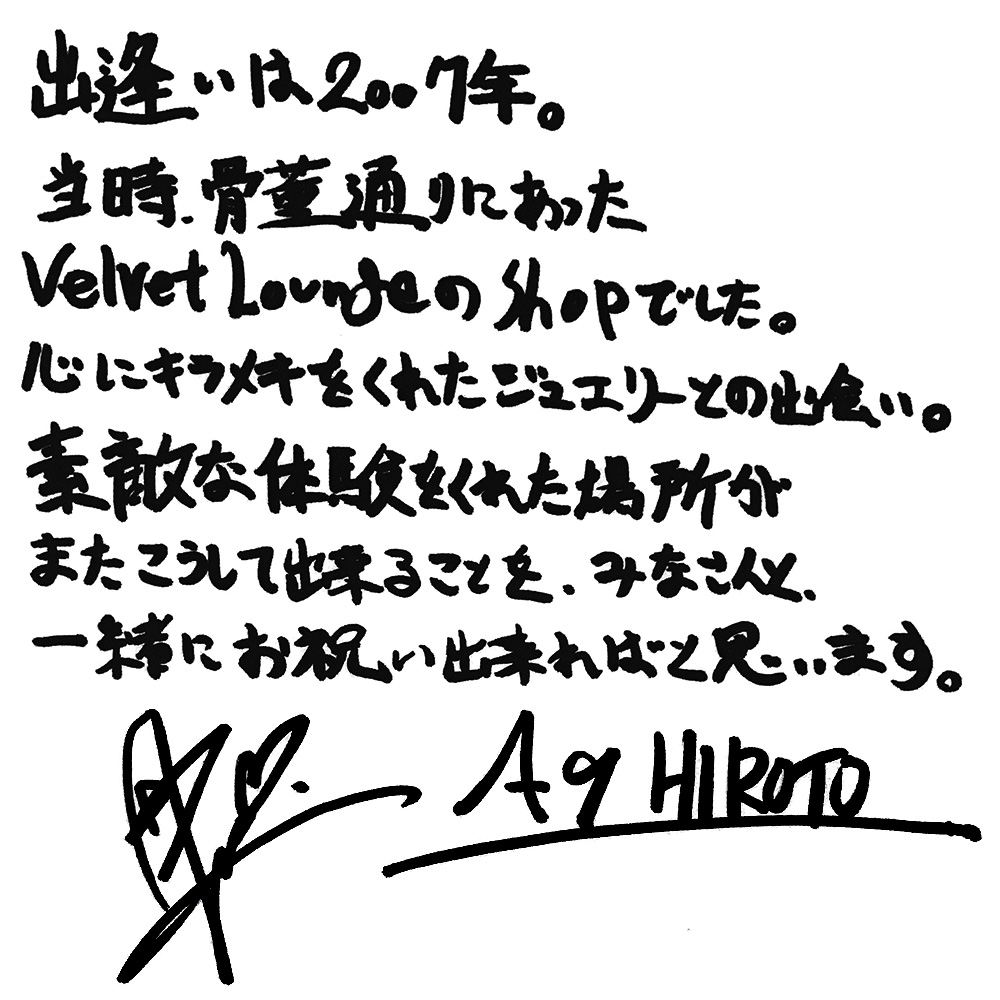 出逢いは2007年。
当時、骨董通りにあった
Velvet Loungeのshopでした。
心にキラメキをくれたジュエリーとの出会い。
素敵な体験をくれた場所が
またこうして出来ることを、みなさんと、
一緒にお祝い出来ればと思います。
A9 HIROTO